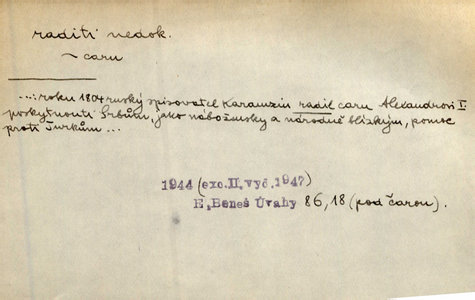 raditi nedok.
~ caru
...: roku 1804 ruský spisovatel Karamzin radil caru Alexandrovi I
poskytnouti Srbům, jako nábožensky a národně blízkým, pomoc
proti Turkům ...
1944 (exc. II. vyd. 1947)
E. Beneš Úvahy 86, 18 (pod čarou).